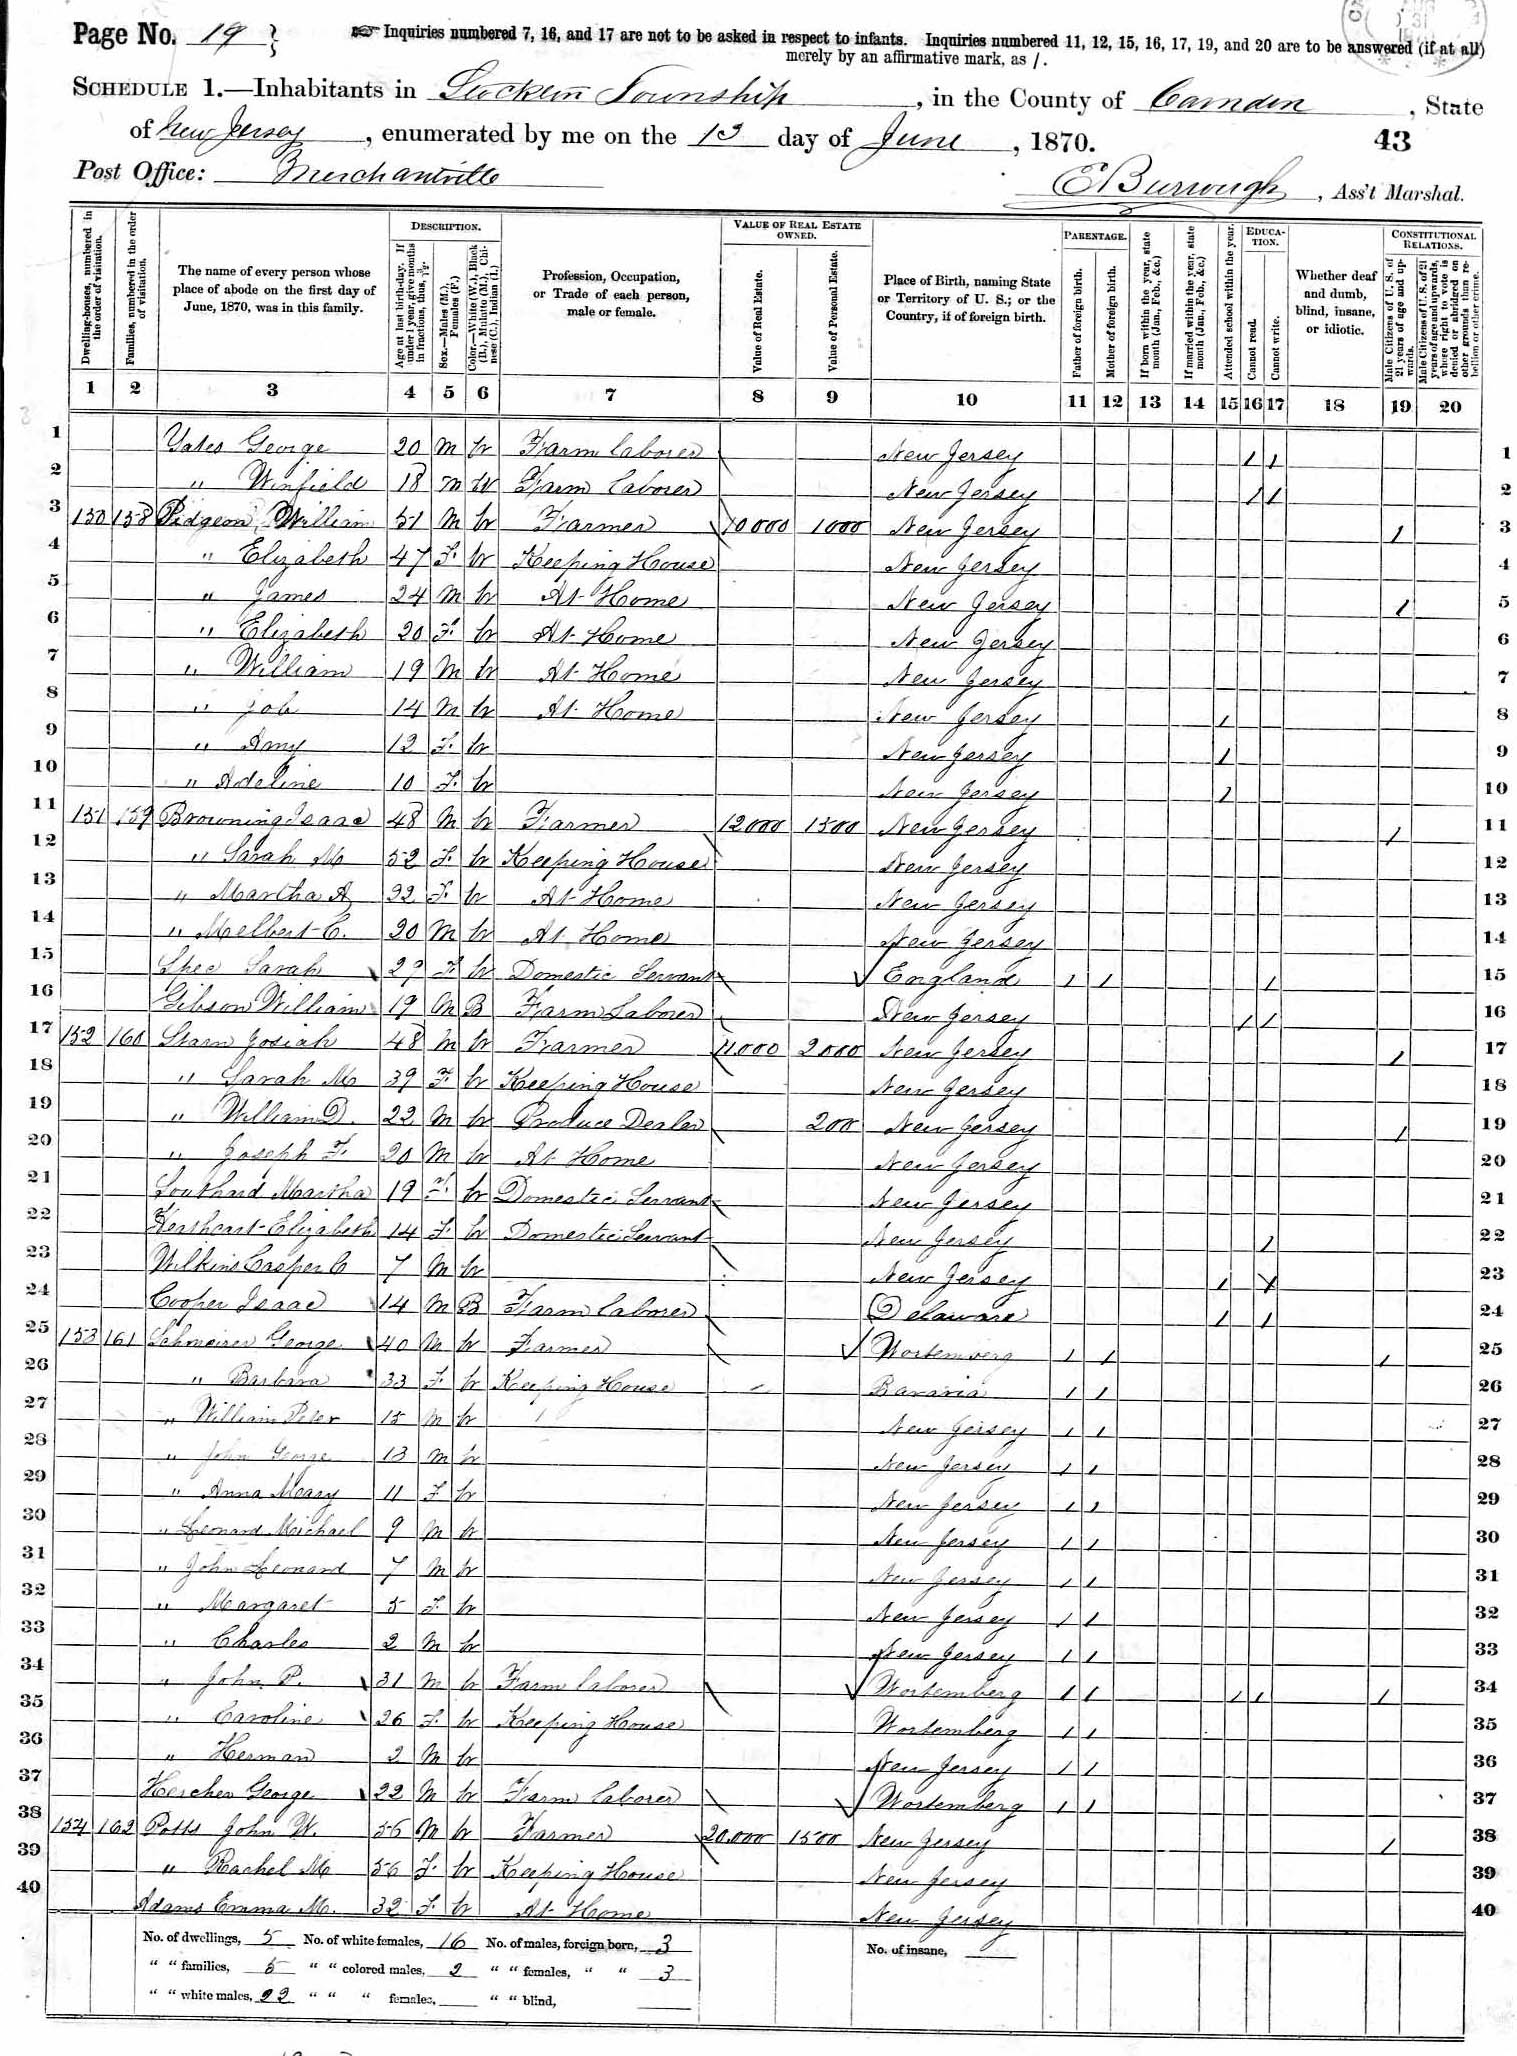 Page No. 19
☞ Inquiries numbered 7, 16, and 17 are not to be asked in respect to infants. Inquiries numbered 11, 12, 15, 16, 17, 19, and 20 are to be answered (if at all)
merely by an affirmative mark, as /.
SCHEDULE 1.—Inhabitants in Township, in the County of Camden, State
of New Jersey, enumerated by me on the 13 day of June, 1870.
43
Post Office: Merchantville
E Burrough, Ass't Marshal.
Dwelling-houses, numbered in the order of visitation.
Families, numbered in the order of visitation.
The name of every person whose place of abode on the first day of June, 1870, was in this family.
DESCRIPTION.
Age at last birth-day. If under 1 year, give months in fractions, thus, 3/12.
Sex.—Males (M.), Females (F.)
Color.—White (W.), Black (B.), Mulatto (M.), Chinese (C.), Indian (I.)
Profession, Occupation, or Trade of each person, male or female.
VALUE OF REAL ESTATE OWNED.
Value of Real Estate.
Value of Personal Estate.
Place of Birth, naming State or Territory of U. S.; or the Country, if of foreign birth.
PARENTAGE.
Father of foreign birth.
Mother of foreign birth.
If born within the year, state month (Jan., Feb., &c.)
If married within the year, state month (Jan., Feb., &c.)
Attended school within the year.
EDUCATION.
Cannot read.
Cannot write.
Whether deaf and dumb, blind, insane, or idiotic.
CONSTITUTIONAL RELATIONS.
Male Citizens of U. S. of 21 years of age and upwards.
Male Citizens of U. S. of 21 years of age and upwards, where right to vote is denied or abridged on other grounds than rebellion or other crime.
1 2 3 4 5 6 7 8 9 10 11 12 13 14 15 16 17 18 19 20
1 Yates George 20 M W Farm laborer New Jersey / / 1
2 " Winfield 18 M W Farm laborer New Jersey / / 2
3 150 158 Pidgeon William 51 M W Farmer 10000 1000 New Jersey / 3
4 " Elizabeth 47 F. W Keeping House New Jersey 4
5 " James 24 M W At Home New Jersey / 5
6 " Elizabeth 20 F. W At Home New Jersey 6
7 " William 19 M W At Home New Jersey 7
8 " Job 14 M W At Home New Jersey / 8
9 " Amy 12 F. W New Jersey / 9
10 " Adeline 10 F. W New Jersey / 10
11 151 159 Browning Isaac 48 M W Farmer 12000 1500 New Jersey / 11
12 " Sarah M 52 F. W Keeping House New Jersey 12
13 " Martha A 22 F. W At Home New Jersey 13
14 " Melbert C. 20 M W At Home New Jersey 14
15 Sarah 29 F. W Domestic Servant England / / / 15
16 Gibson William 19 M B Farm Laborer New Jersey / / 16
17 152 160 Starn Josiah 48 M W Farmer 11000 2000 New Jersey / 17
18 " Sarah M 39 F. W Keeping House New Jersey 18
19 " William D. 22 M W Produce Dealer 200 New Jersey / 19
20 " Joseph F. 20 M W At Home New Jersey 20
21 Southard Martha 19 F. W Domestic Servant New Jersey 21
22 Elizabeth 14 F. W Domestic Servant New Jersey / 22
23 Wilkins Casper C 7 M W New Jersey / / 23
24 Cooper Isaac 14 M B Farm laborer Delaware / / 24
25 153 161 George 40 M W Farmer Wortemberg / / / 25
26 " Barbara 33 F. W Keeping House Bavaria / / 26
27 " William Peter 15 M W New Jersey / / 27
28 " John George 13 M W New Jersey / / 28
29 " Anna Mary 11 F W New Jersey / / 29
30 " Leonard Michael 9 M W New Jersey / / 30
31 " John Leonard 7 M W New Jersey / / 31
32 " Margaret 5 F. W New Jersey / / 32
33 " Charles 2 M W New Jersey / / 33
34 " John P. 31 M W Farm laborer Wortemberg / / / / / 34
35 " Caroline 26 F. W Keeping House Wortemberg / / 35
36 " Herman 2 M W New Jersey / / 36
37 George 22 M W Farm laborer Wortemberg / / 37
38 154 162 Potts John W. 56 M W Farmer 20.000 1500 New Jersey / 38
39 " Rachel M 56 F. W Keeping House New Jersey 39
40 Adams Emma M. 32 F. W At Home New Jersey 40
No. of dwellings, 5 No. of white females, 16 No. of males, foreign born, 3 No. of insane,
" " families, 5 " " colored males, 2 " " females, " " 3
" " white males, 22 " " " females, " " blind,